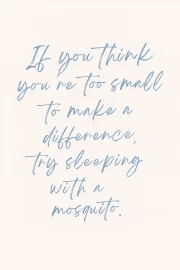 If you think
you're too small
to make a
difference,
try sleeping
with a
mosquito.